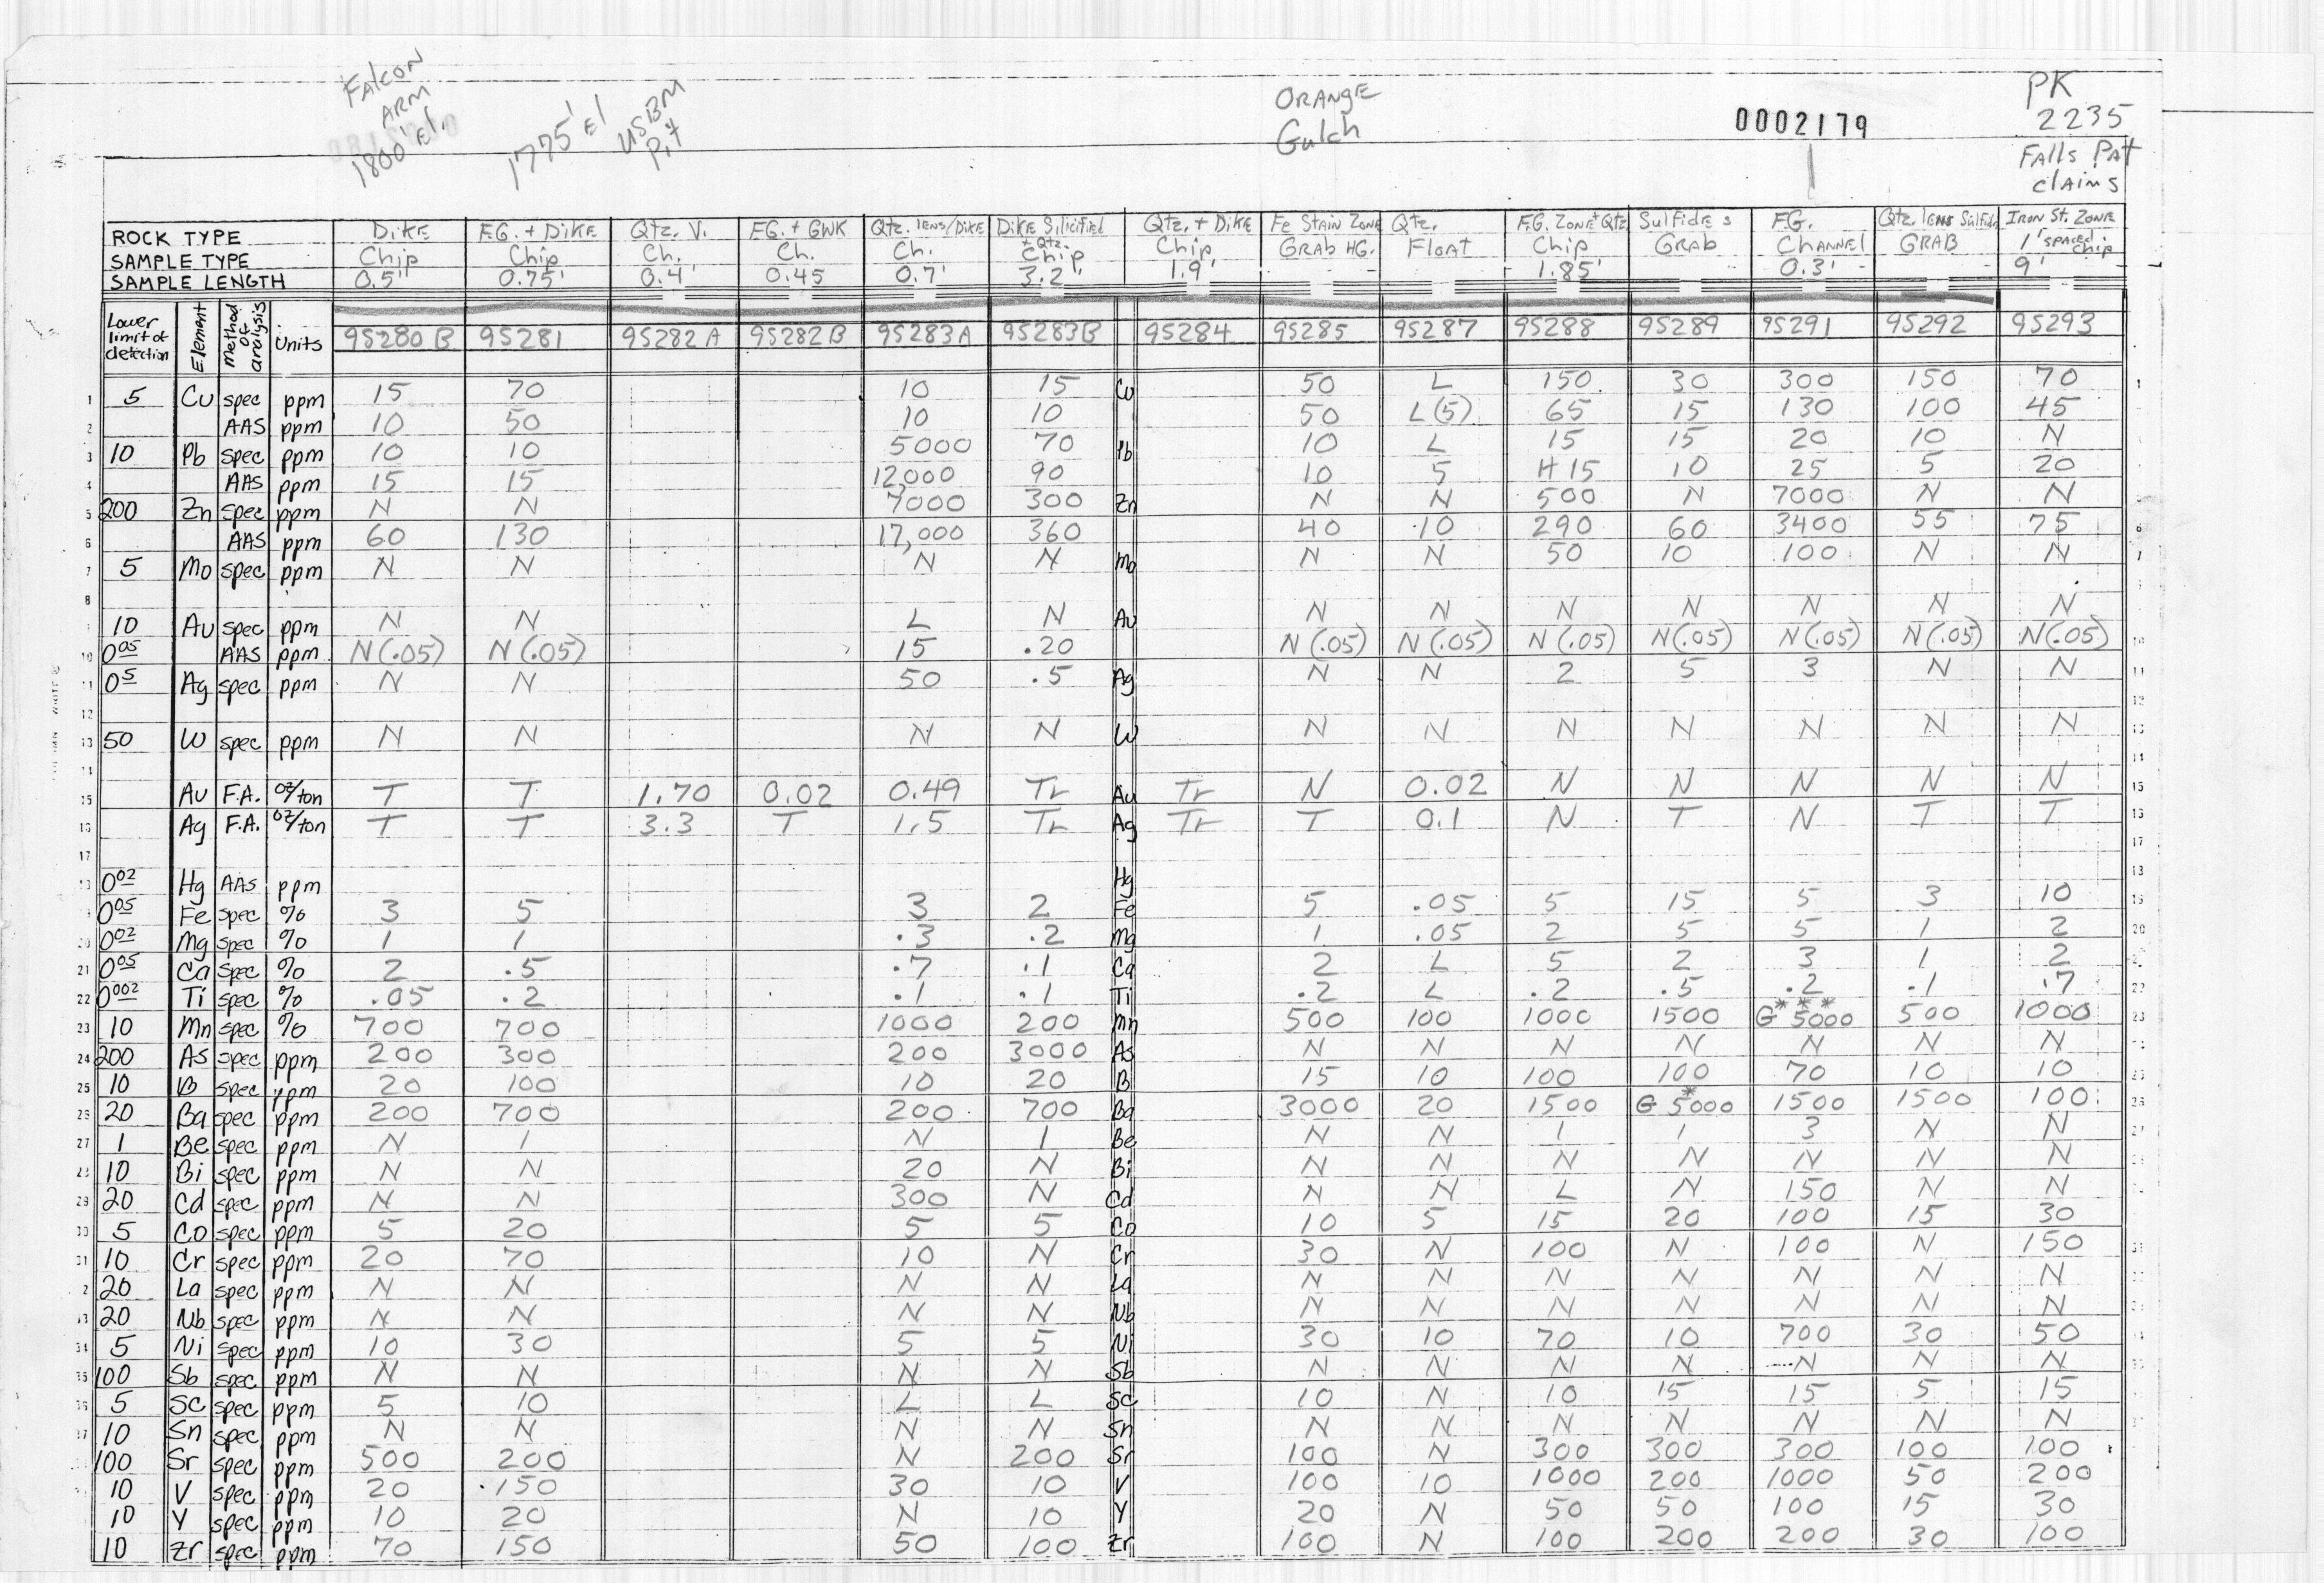 Falcon ARM 1800' El.
1775' El
USBM Pit
ORANGE Gulch
0002179
PK 2235 Falls Pat claims
ROCK TYPE | Dike | F.G. + Dike | Qtz. V. | F.G. + GWK | Qtz. lens/Dike | Dike Silicified + Qtz. | Qtz. + Dike | Fe Stain Zone | Qtz. | F.G. Zone + Qtz | Sulfides | F.G. | Qtz. lens Sulfide | Iron St. Zone
SAMPLE TYPE | Chip | Chip | Ch. | Ch. | Ch. | Chip | Chip | GRAB HG. | Float | Chip | GRAB | Channel | GRAB | 1' spaced chip
SAMPLE LENGTH | 0.5' | 0.75' | 0.4' | 0.45 | 0.7' | 3.2' | 1.9' | 1.85' | 0.3' | 9'
Lower limit of detection | Element | Method of analysis | Units | 95280 B | 95281 | 95282 A | 95282 B | 95283A | 95283B | 95284 | 95285 | 95287 | 95288 | 95289 | 95291 | 95292 | 95293
1 | 5 | Cu | spec | ppm | 15 | 70 | 10 | 15 | Cu | 50 | L | 150 | 30 | 300 | 150 | 70 | 1
2 | AAS | ppm | 10 | 50 | 10 | 10 | 50 | L(5) | 65 | 15 | 130 | 100 | 45
3 | 10 | Pb | spec | ppm | 10 | 10 | 5000 | 70 | Pb | 10 | L | 15 | 15 | 20 | 10 | N
4 | AAS | ppm | 15 | 15 | 12,000 | 90 | 10 | 5 | H 15 | 10 | 25 | 5 | 20
5 | 200 | Zn | spec | ppm | N | N | 7000 | 300 | Zn | N | N | 500 | N | 7000 | N | N
6 | AAS | ppm | 60 | 130 | 17,000 | 360 | 40 | 10 | 290 | 60 | 3400 | 55 | 75
7 | 5 | Mo | spec | ppm | N | N | N | N | Mo | N | N | 50 | 10 | 100 | N | N
8
10 | Au | spec | ppm | N | N | L | N | Au | N | N | N | N | N | N | N
10 | 0.05 | AAS | ppm | N(.05) | N(.05) | 15 | .20 | N(.05) | N(.05) | N(.05) | N(.05) | N(.05) | N(.05) | N(.05)
11 | 0.5 | Ag | spec | ppm | N | N | 50 | .5 | Ag | N | N | 2 | 5 | 3 | N | N | 11
12
13 | 50 | W | spec | ppm | N | N | N | N | W | N | N | N | N | N | N | N
14
15 | Au | F.A. | oz/ton | T | T | 1.70 | 0.02 | 0.49 | Tr | Au | Tr | N | 0.02 | N | N | N | N | N | 15
16 | Ag | F.A. | oz/ton | T | T | 3.3 | T | 1.5 | Tr | Ag | Tr | T | 0.1 | N | T | N | T | T
17
0.02 | Hg | AAS | ppm | Hg
0.05 | Fe | spec | % | 3 | 5 | 3 | 2 | Fe | 5 | .05 | 5 | 15 | 5 | 3 | 10
20 | 0.02 | Mg | spec | % | 1 | 1 | .3 | .2 | Mg | 1 | .05 | 2 | 5 | 5 | 1 | 2 | 20
21 | 0.05 | Ca | spec | % | 2 | .5 | .7 | .1 | Ca | 2 | L | 5 | 2 | 3 | 1 | 2
22 | 0.002 | Ti | spec | % | .05 | .2 | .1 | .1 | Ti | .2 | L | .2 | .5 | .2 | .1 | .7 | 22
23 | 10 | Mn | spec | % | 700 | 700 | 1000 | 200 | Mn | 500 | 100 | 1000 | 1500 | G*** 5000 | 500 | 1000 | 23
24 | 200 | As | spec | ppm | 200 | 300 | 200 | 3000 | As | N | N | N | N | N | N | N
25 | 10 | B | spec | ppm | 20 | 100 | 10 | 20 | B | 15 | 10 | 100 | 100 | 70 | 10 | 10
20 | Ba | spec | ppm | 200 | 700 | 200 | 700 | Ba | 3000 | 20 | 1500 | G* 5000 | 1500 | 1500 | 100 | 26
27 | 1 | Be | spec | ppm | N | 1 | N | 1 | Be | N | N | 1 | 1 | 3 | N | N
10 | Bi | spec | ppm | N | N | 20 | N | Bi | N | N | N | N | N | N | N
29 | 20 | Cd | spec | ppm | N | N | 300 | N | Cd | N | N | L | N | 150 | N | N
30 | 5 | Co | spec | ppm | 5 | 20 | 5 | 5 | Co | 10 | 5 | 15 | 20 | 100 | 15 | 30
31 | 10 | Cr | spec | ppm | 20 | 70 | 10 | N | Cr | 30 | N | 100 | N | 100 | N | 150
20 | La | spec | ppm | N | N | N | N | La | N | N | N | N | N | N | N
20 | Nb | spec | ppm | N | N | N | N | Nb | N | N | N | N | N | N | N
34 | 5 | Ni | spec | ppm | 10 | 30 | 5 | 5 | Ni | 30 | 10 | 70 | 10 | 700 | 30 | 50
35 | 100 | Sb | spec | ppm | N | N | N | N | Sb | N | N | N | N | N | N | N
5 | Sc | spec | ppm | 5 | 10 | L | L | Sc | 10 | N | 10 | 15 | 15 | 5 | 15
10 | Sn | spec | ppm | N | N | N | N | Sn | N | N | N | N | N | N | N
100 | Sr | spec | ppm | 500 | 200 | N | 200 | Sr | 100 | N | 300 | 300 | 300 | 100 | 100
10 | V | spec | ppm | 20 | 150 | 30 | 10 | V | 100 | 10 | 1000 | 200 | 1000 | 50 | 200
10 | Y | spec | ppm | 10 | 20 | N | 10 | Y | 20 | N | 50 | 50 | 100 | 15 | 30
10 | Zr | spec | ppm | 70 | 150 | 50 | 100 | Zr | 100 | N | 100 | 200 | 200 | 30 | 100